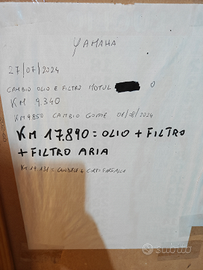 YAMAHA
27/07/2024
CAMBIO OLIO E FILTRO MOTUL O
KM 9.340
KM 9850 CAMBIO GOMME 08/08/2024
KM 17.890 = OLIO + FILTRO
+ FILTRO ARIA
KM
subito